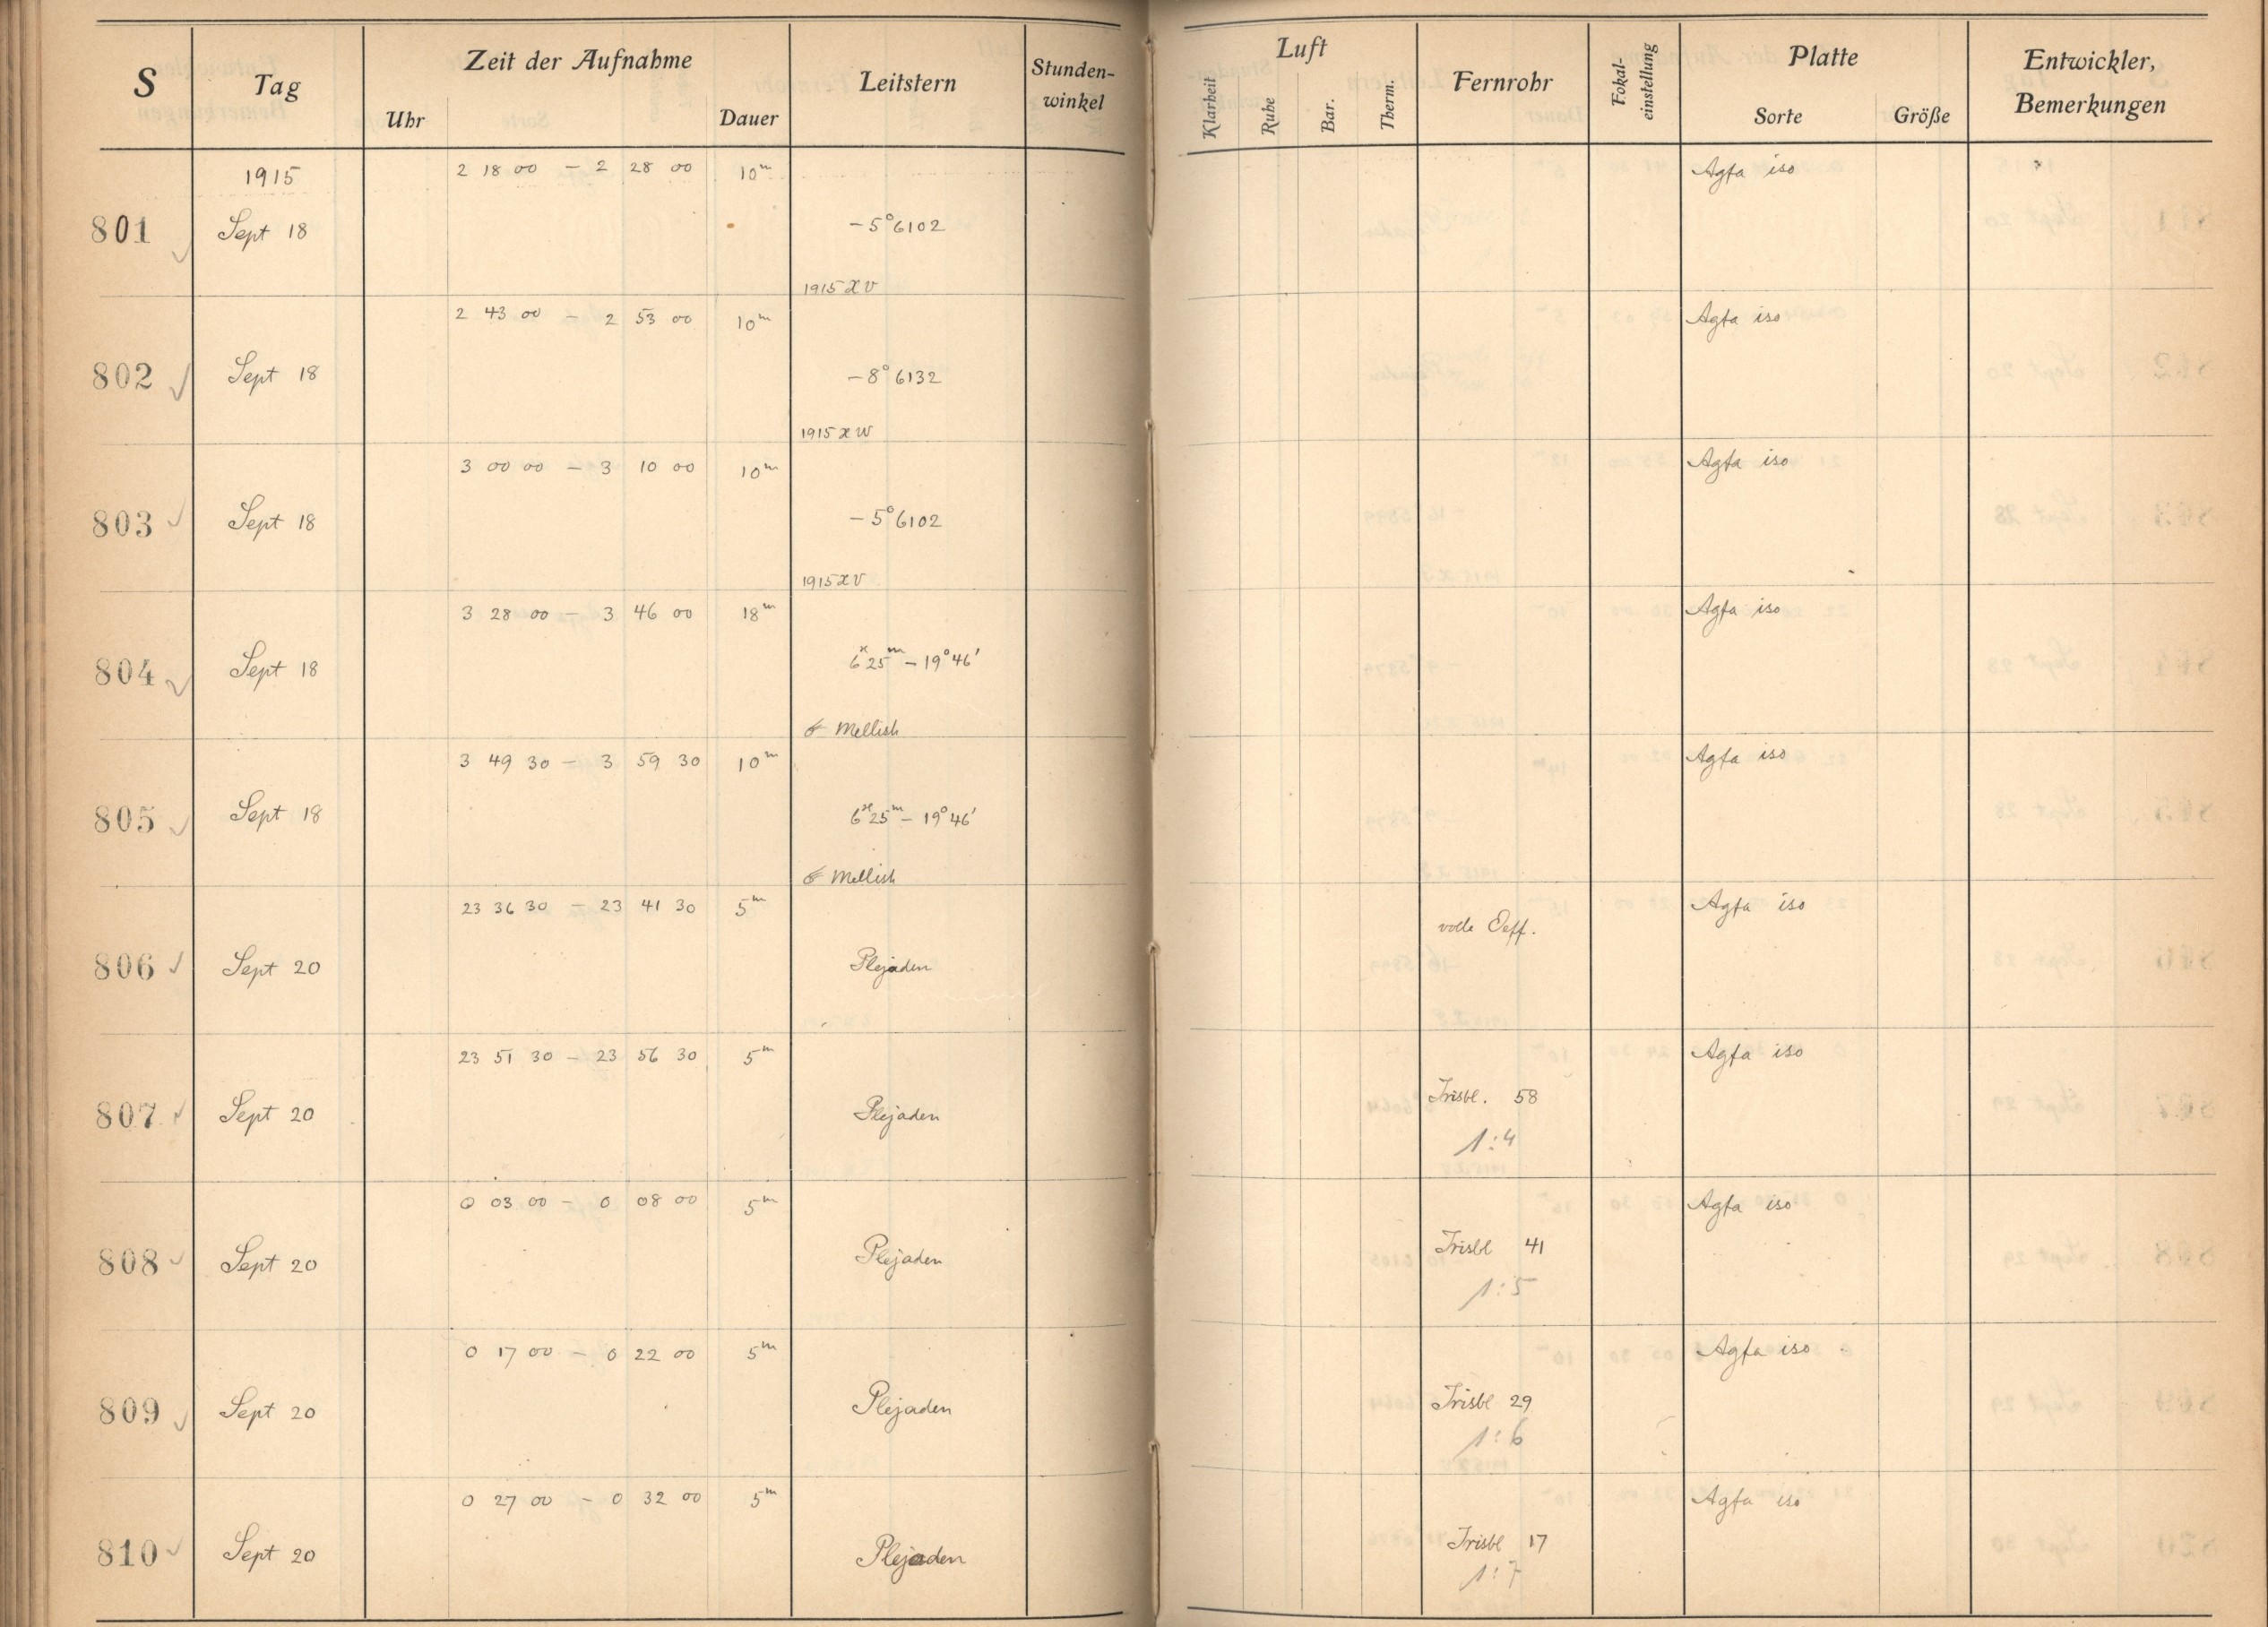 S Tag Zeit der Aufnahme Leitstern Stunden-winkel Luft Fernrohr Fokal-einstellung Platte Entwickler, Bemerkungen
Uhr Dauer Klarheit Ruhe Bar. Therm. Sorte Größe
1915 2 18 00 – 2 28 00 10m Agfa iso
801 Sept 18 –5°6102
1915 XV
2 43 00 – 2 53 00 10m Agfa iso
802 Sept 18 –8°6132
1915 XW
3 00 00 – 3 10 00 10m Agfa iso
803 Sept 18 –5°6102
1915 XV
3 28 00 – 3 46 00 18m Agfa iso
804 Sept 18 6h 25m – 19°46'
☄ Mellish
3 49 30 – 3 59 30 10m Agfa iso
805 Sept 18 6h 25m – 19°46'
☄ Mellish
23 36 30 – 23 41 30 5m Agfa iso
volle Oeff.
806 Sept 20 Plejaden
23 51 30 – 23 56 30 5m Agfa iso
807 Sept 20 Plejaden Irisbl. 58
1:4
0 03 00 – 0 08 00 5m Agfa iso
808 Sept 20 Plejaden Irisbl 41
1:5
0 17 00 – 0 22 00 5m Agfa iso
809 Sept 20 Plejaden Irisbl 29
1:6
0 27 00 – 0 32 00 5m Agfa iso
810 Sept 20 Plejaden Irisbl 17
1:7